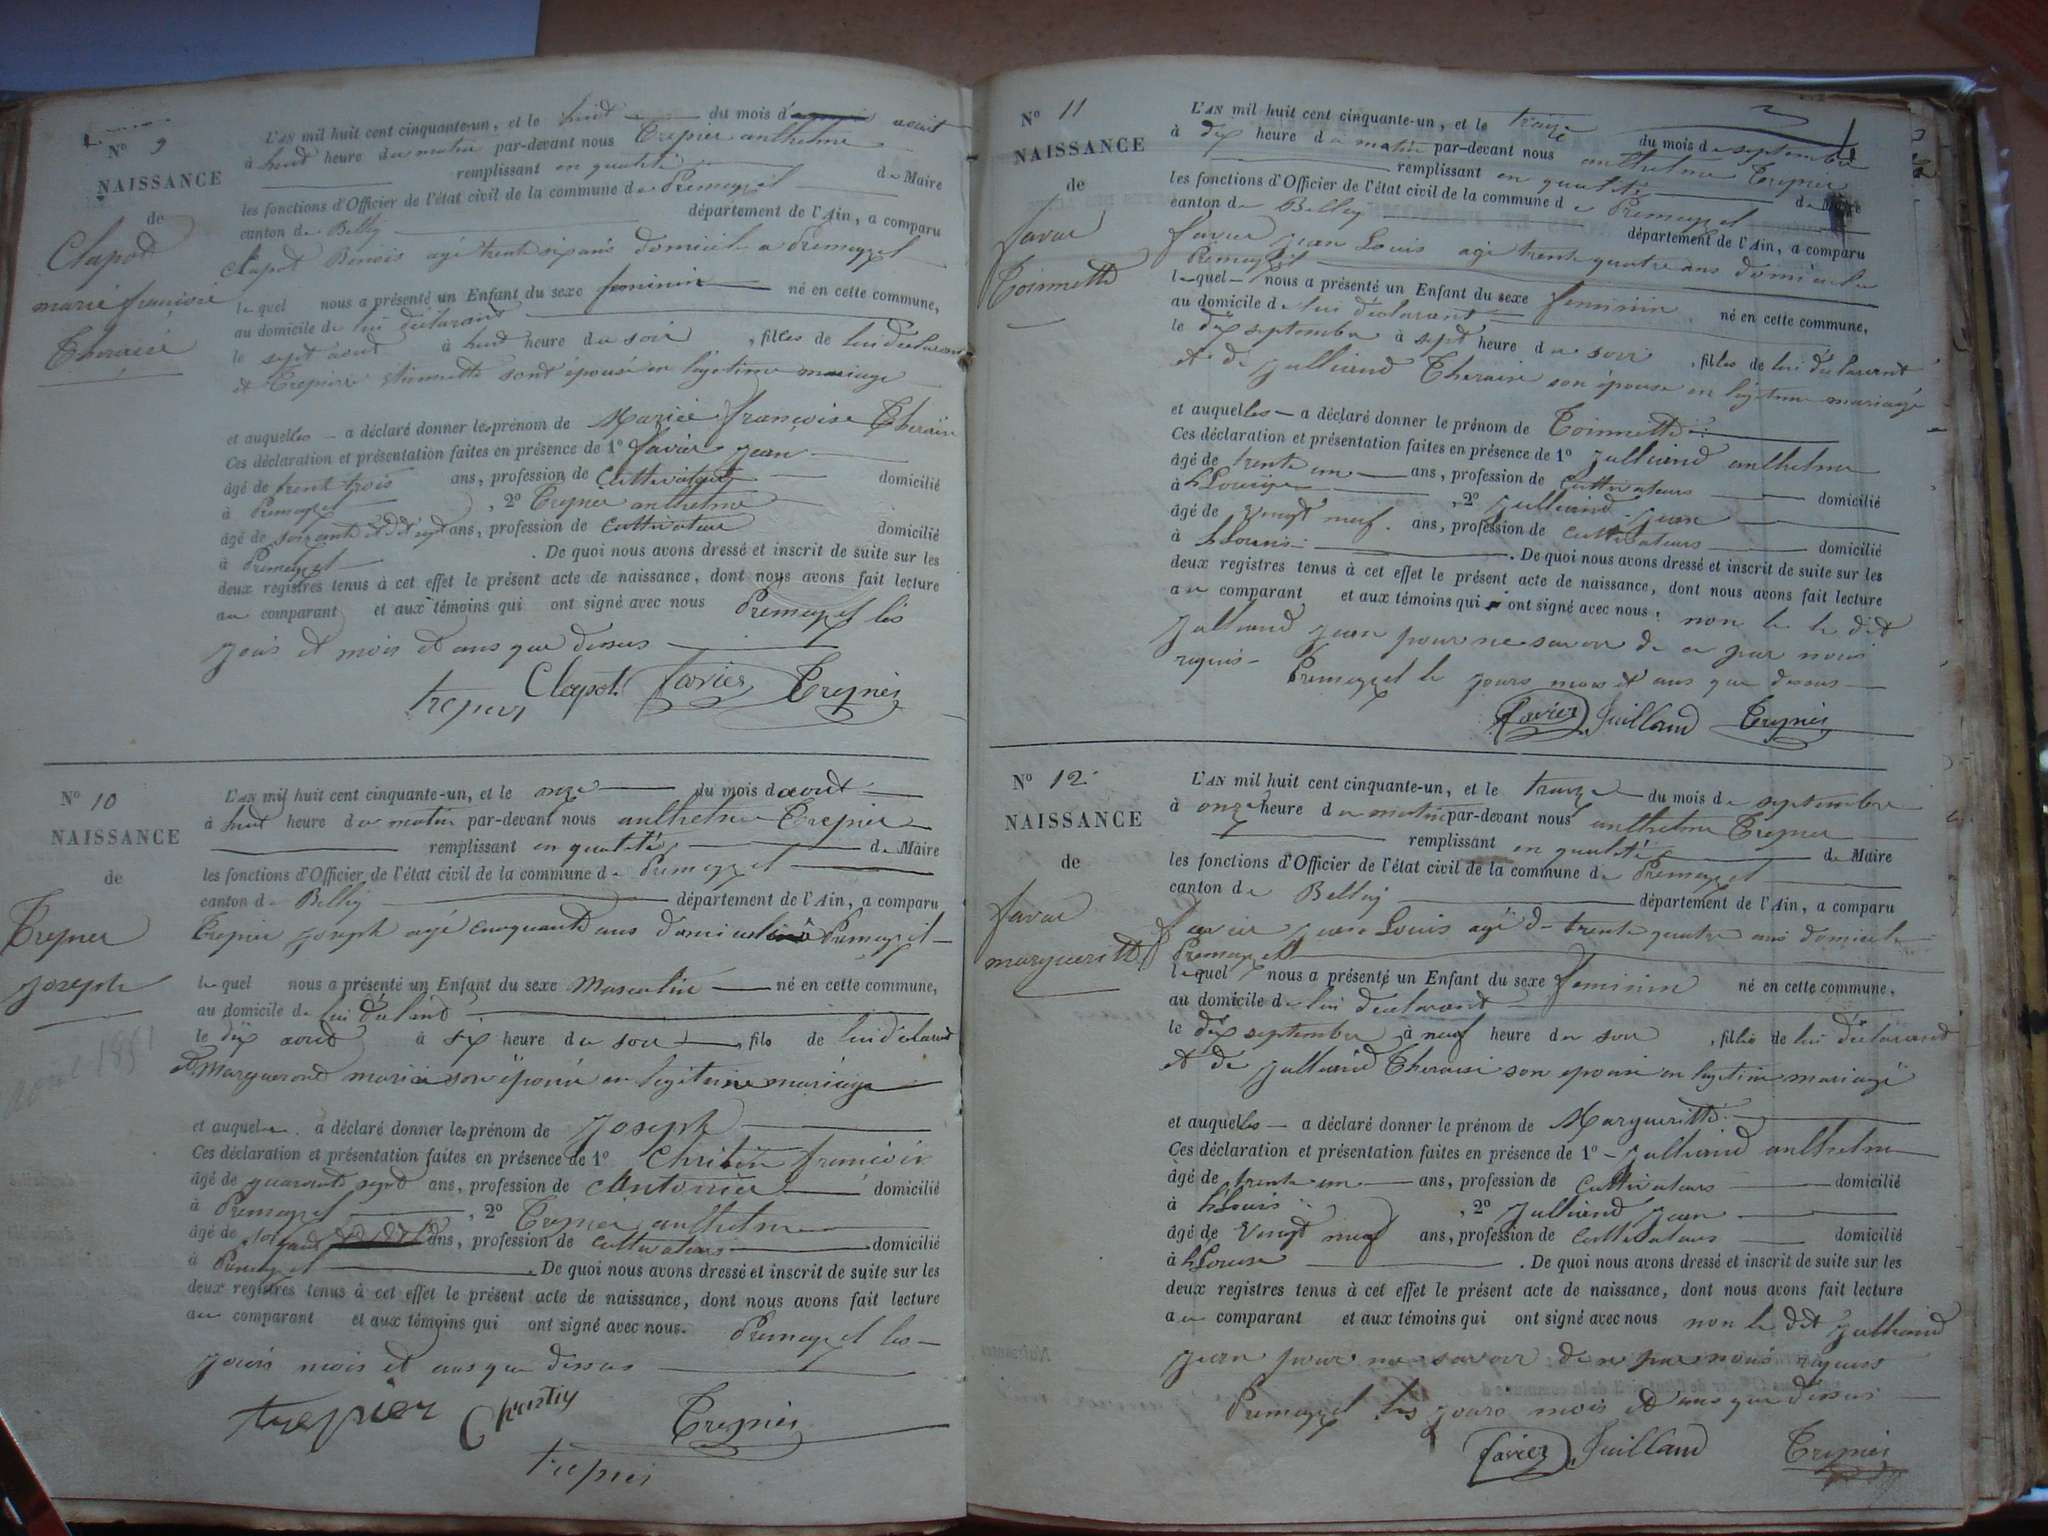 N° 9
NAISSANCE
de
Clapot
marie françoise
Theraise
L'AN mil huit cent cinquante-un, et le huit du mois d'août
à huit heure du matin par-devant nous Trepier anthelme
remplissant en qualité de Maire
les fonctions d'Officier de l'état civil de la commune de Premeyzel
canton de Belley département de l'Ain, a comparu
Clapot Benois agé trent six ans domicile a Premeyzel
lequel nous a présenté un Enfant du sexe feminin né en cette commune,
au domicile de lui déclarant
le sept août à huit heure du soir, filles de lui declarant
et Trepier etiennette sont épouse en légetime mariage
et auquelles a déclaré donner les prénom de Mariée françoise Theraise
Ces déclaration et présentation faites en présence de 1° favier jean
âgé de trent trois ans, profession de Cultivateur domicilié
à Premeyzel, 2° Trepier anthelme
âgé de soixante et dix sept ans, profession de Cultivateur domicilié
à Premeyzel. De quoi nous avons dressé et inscrit de suite sur les
deux registres tenus à cet effet le présent acte de naissance, dont nous avons fait lecture
au comparant et aux témoins qui ont signé avec nous Premeyzel les
jours et mois et ans que dessus
trepier Clapot favier Trepier
N° 10
NAISSANCE
de
Trepier
joseph
aout 1851
L'AN mil huit cent cinquante-un, et le onze du mois d'août
à huit heure du matin par-devant nous anthelme Trepier
remplissant en qualité de Maire
les fonctions d'Officier de l'état civil de la commune de Premeyzel
canton de Belley département de l'Ain, a comparu
Trepier joseph agé cinquante ans domicilié à Premeyzel
lequel nous a présenté un Enfant du sexe Masculin né en cette commune,
au domicile de lui
le dix août à six heure du soir, fils de lui déclarant
et Marguerond maria son épouse en légitime mariage
et auquel a déclaré donner les prénom de joseph
Ces déclaration et présentation faites en présence de 1°
âgé de quarante sept ans, profession de domicilié
à Premeyzel, 2° Trepier anthelme
âgé de ans, profession de cultivateurs domicilié
à Premeyzel. De quoi nous avons dressé et inscrit de suite sur les
deux registres tenus à cet effet le présent acte de naissance, dont nous avons fait lecture
au comparant et aux témoins qui ont signé avec nous. Premeyzel les
jours mois et ans que dessus
trepier Trepier
trepier
N° 11
NAISSANCE
de
favier
Toinnette
L'AN mil huit cent cinquante-un, et le treize du mois de septembre
à dix heure du matin par-devant nous anthelme Trepier
remplissant en qualité de Maire
les fonctions d'Officier de l'état civil de la commune de Premeyzel
canton de Belley département de l'Ain, a comparu
favier jean Louis agé trente quatre ans domicile
Premeyzel
lequel nous a présenté un Enfant du sexe feminin né en cette commune,
au domicile de lui déclarant
le dix septembre à sept heure du soir, filles de lui déclarant
et de julliand Theraise son épouse en légitime mariage
et auquelles a déclaré donner le prénom de Toinnette
Ces déclaration et présentation faites en présence de 1° julliand anthelme
âgé de trente un ans, profession de Cultivateurs domicilié
à, 2° julliand jean
âgé de vingt neuf ans, profession de Cultivateurs domicilié
à. De quoi nous avons dressé et inscrit de suite sur les
deux registres tenus à cet effet le présent acte de naissance, dont nous avons fait lecture
au comparant et aux témoins qui ont signé avec nous. non le dit
julliand jean pour ne savoir de ce par nous
requis Premeyzel le jours mois et ans que dessus
favier juilland Trepier
N° 12
NAISSANCE
de
favier
margueritte
L'AN mil huit cent cinquante-un, et le treize du mois de septembre
à onze heure du matin par-devant nous anthelme Trepier
remplissant en qualité de Maire
les fonctions d'Officier de l'état civil de la commune de Premeyzel
canton de Belley département de l'Ain, a comparu
favier jean Louis agé de trente quatre ans domicile
Premeyzel
lequel nous a présenté un Enfant du sexe feminin né en cette commune,
au domicile de lui déclarant
le dix septembre à neuf heure du soir, filles de lui déclarant
et de julliand Theraise son epouse en légitime mariage
et auquelles a déclaré donner le prénom de Margueritte
Ces déclaration et présentation faites en présence de 1° julliand anthelme
âgé de trente un ans, profession de Cultivateurs domicilié
à, 2° julliand jean
âgé de vingt neuf ans, profession de Cultivateurs domicilié
à. De quoi nous avons dressé et inscrit de suite sur les
deux registres tenus à cet effet le présent acte de naissance, dont nous avons fait lecture
au comparant et aux témoins qui ont signé avec nous non le dit julliand
jean pour ne savoir de ce par nous requis
Premeyzel les jours mois et ans que dessus
favier juilland Trepier